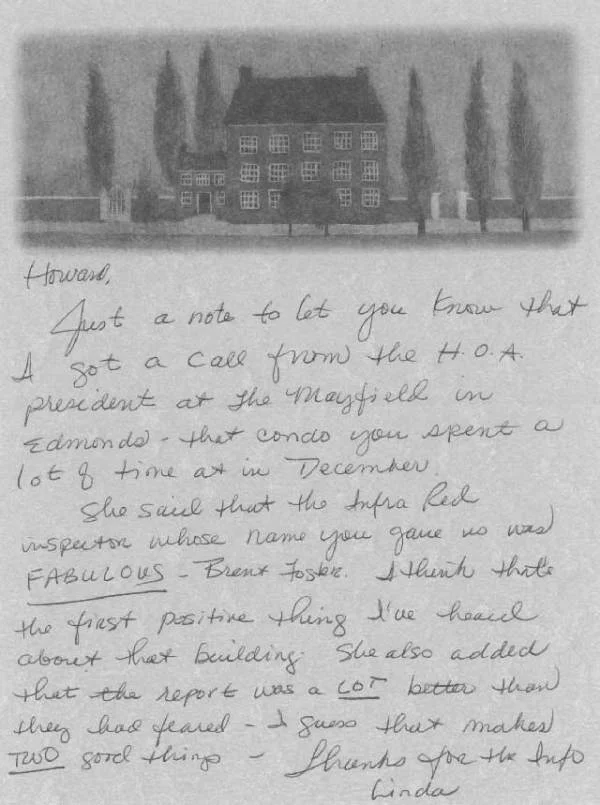 Howard,
Just a note to let you know that
I got a call from the H.O.A.
president at the Mayfield in
Edmonds - that condo you spent a
lot of time at in December.
She said that the Infra Red
inspector whose name you gave us was
FABULOUS - Brent Foster. I think that's
the first positive thing I've heard
about that building. She also added
that the report was a LOT better than
they had feared - I guess that makes
TWO good things - Thanks for the Info
Linda